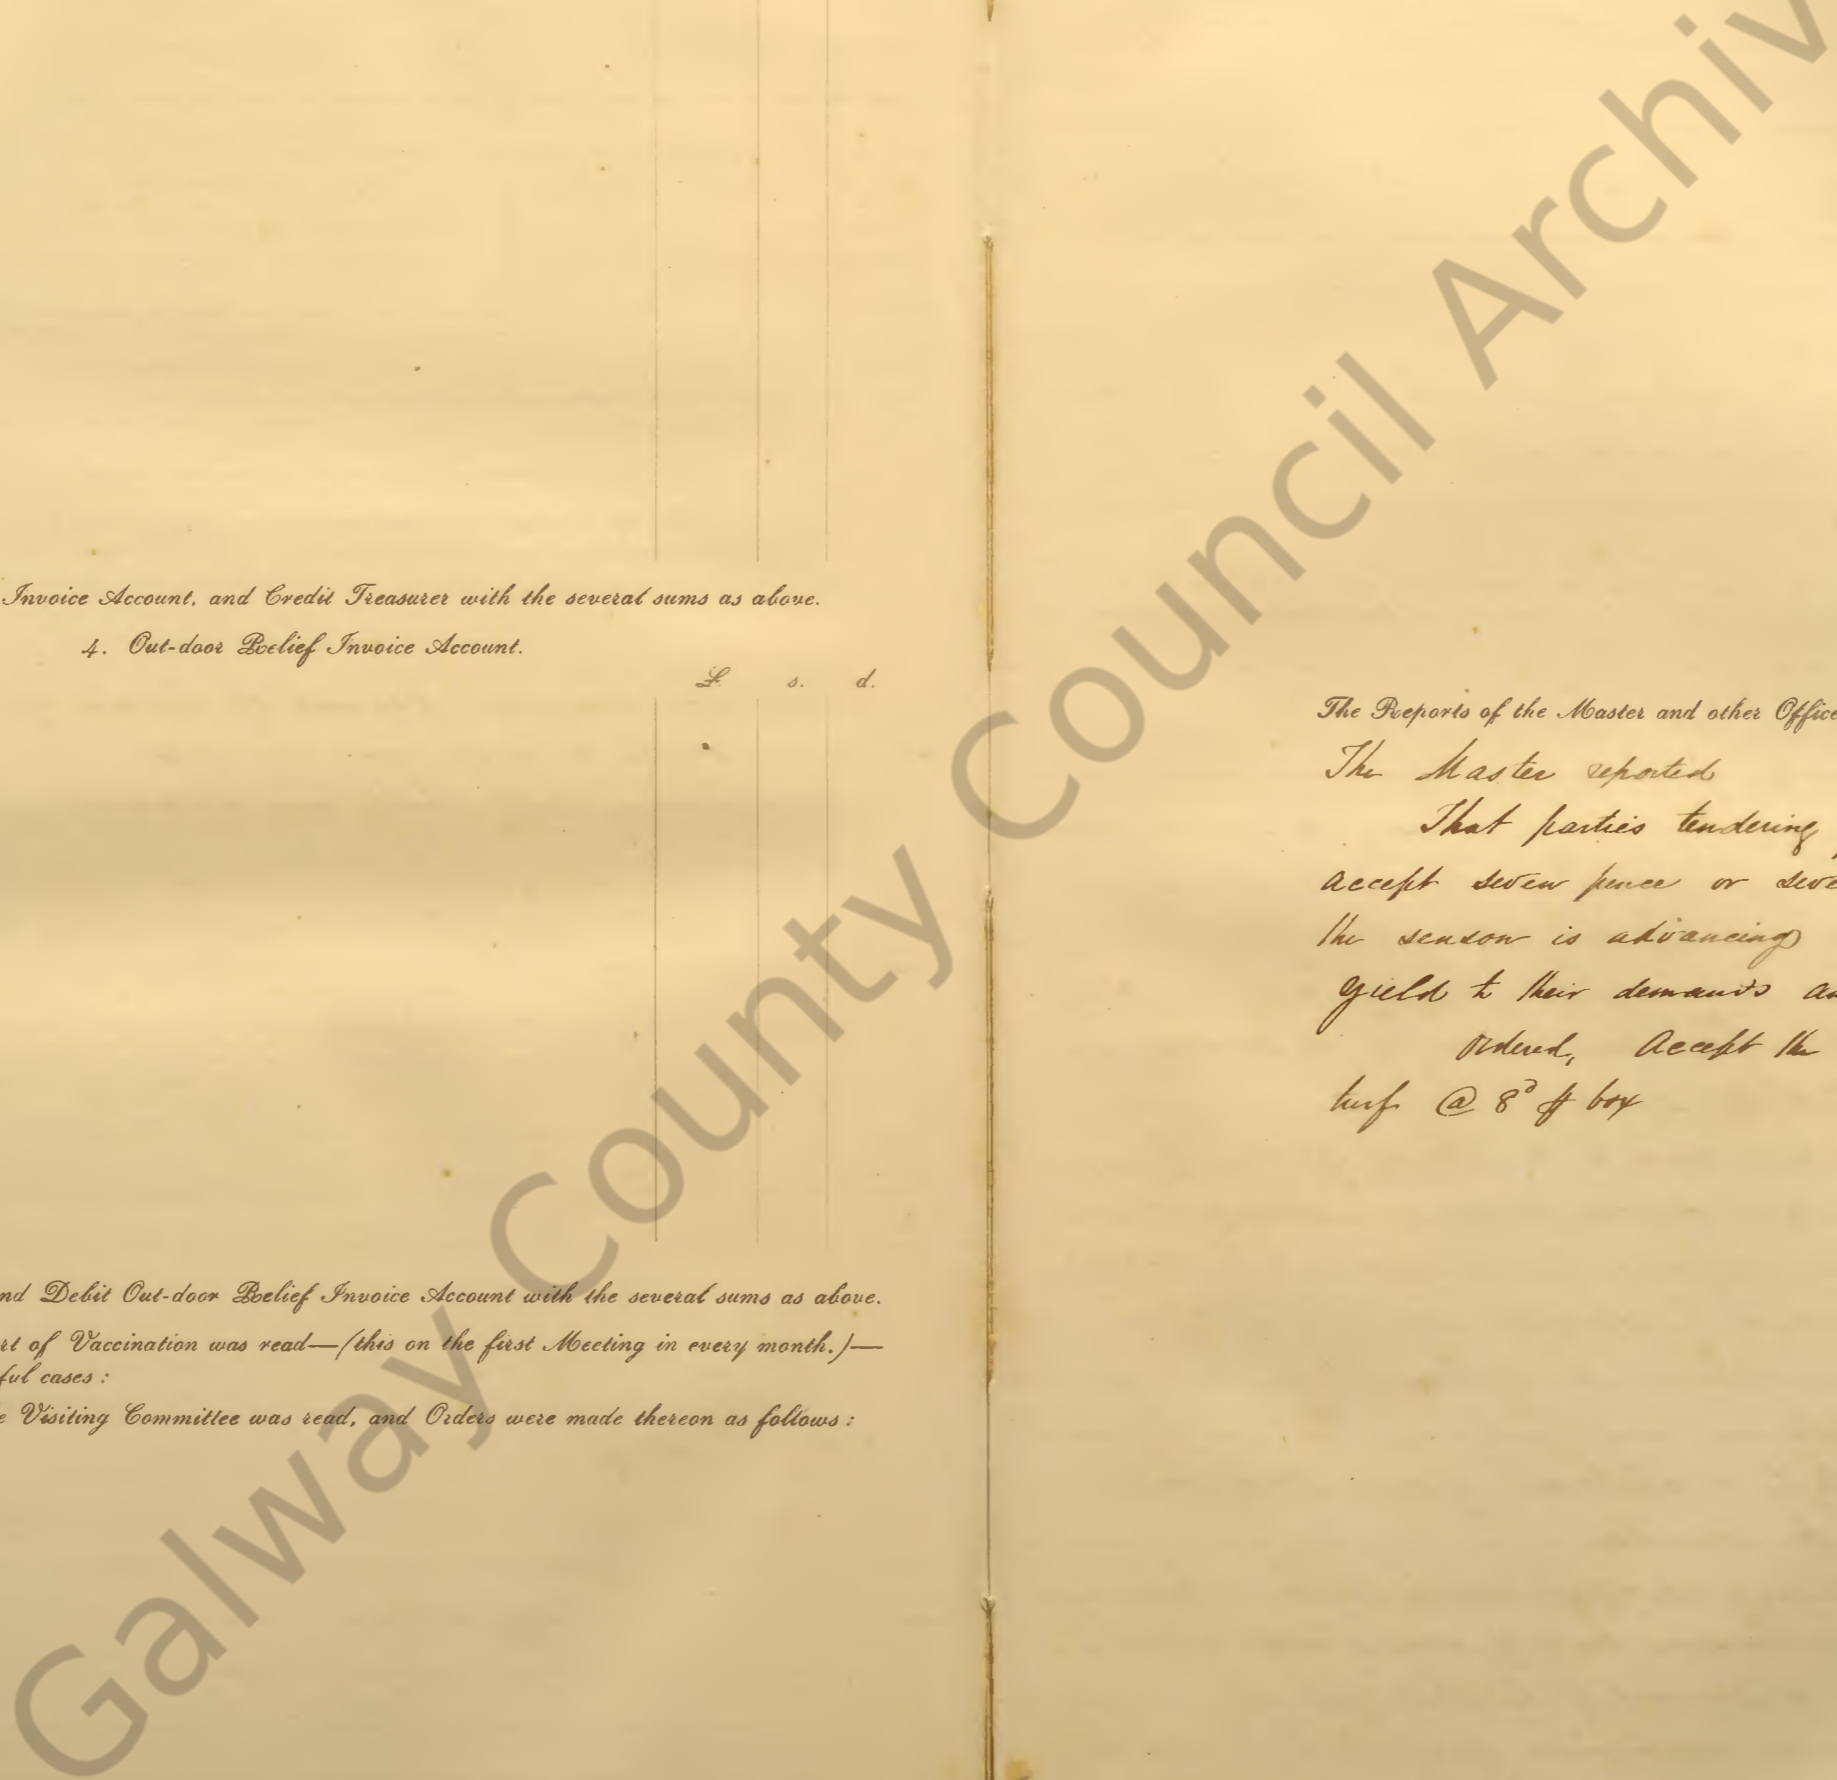 Invoice Account, and Credit Treasurer with the several sums as above.
4. Out-door Relief Invoice Account.
£ s. d.
nd Debit Out-door Relief Invoice Account with the several sums as above.
rt of Vaccination was read—(this on the first Meeting in every month.)—
ful cases :
e Visiting Committee was read, and Orders were made thereon as follows :
The Reports of the Master and other Office
The Master reported
That parties tendering
accept seven pence or seve
the season is advancing
yield to their demands an
Ordered, Accept the
turf @ 8d ⅌ box
Galway County Council Archiv